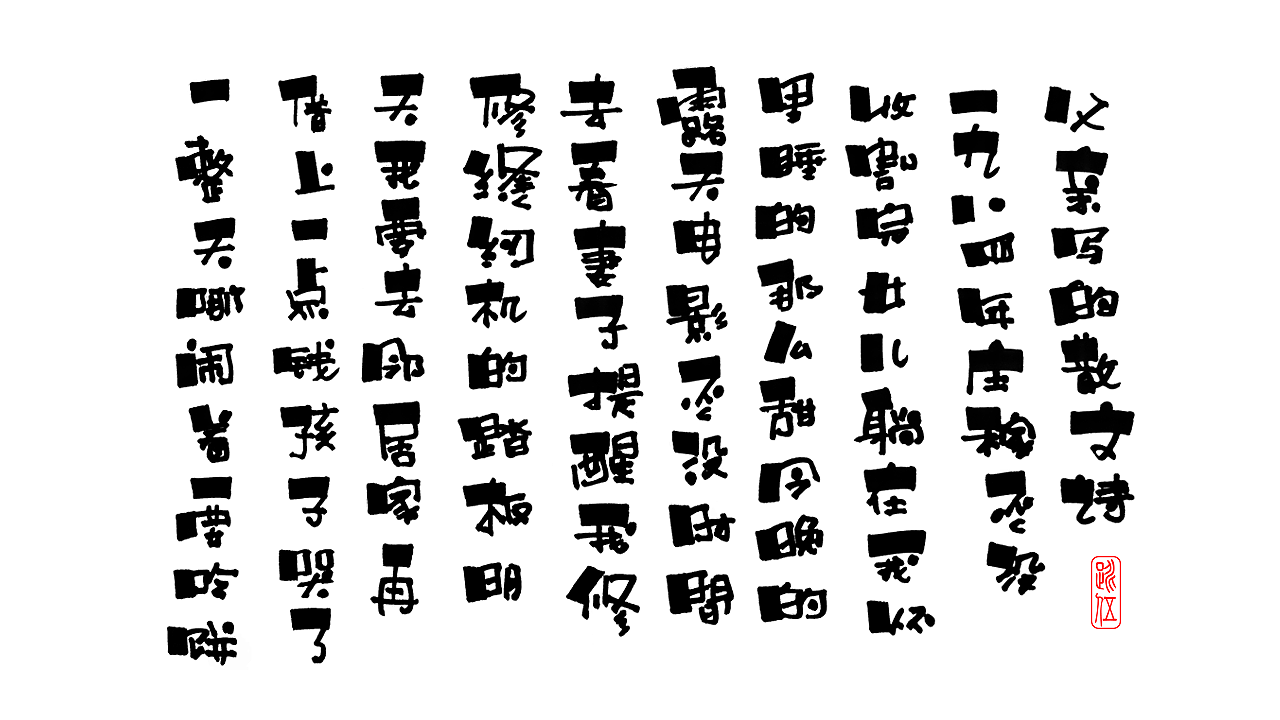 父亲写的散文诗
一九八四年庄稼还没
收割完女儿躺在我怀
里睡的那么甜今晚的
露天电影还没时间
去看妻子提醒我修
修缝纫机的踏板明
天我要去邻居家再
借上一点钱孩子哭了
一整天啊闹着要吃饼